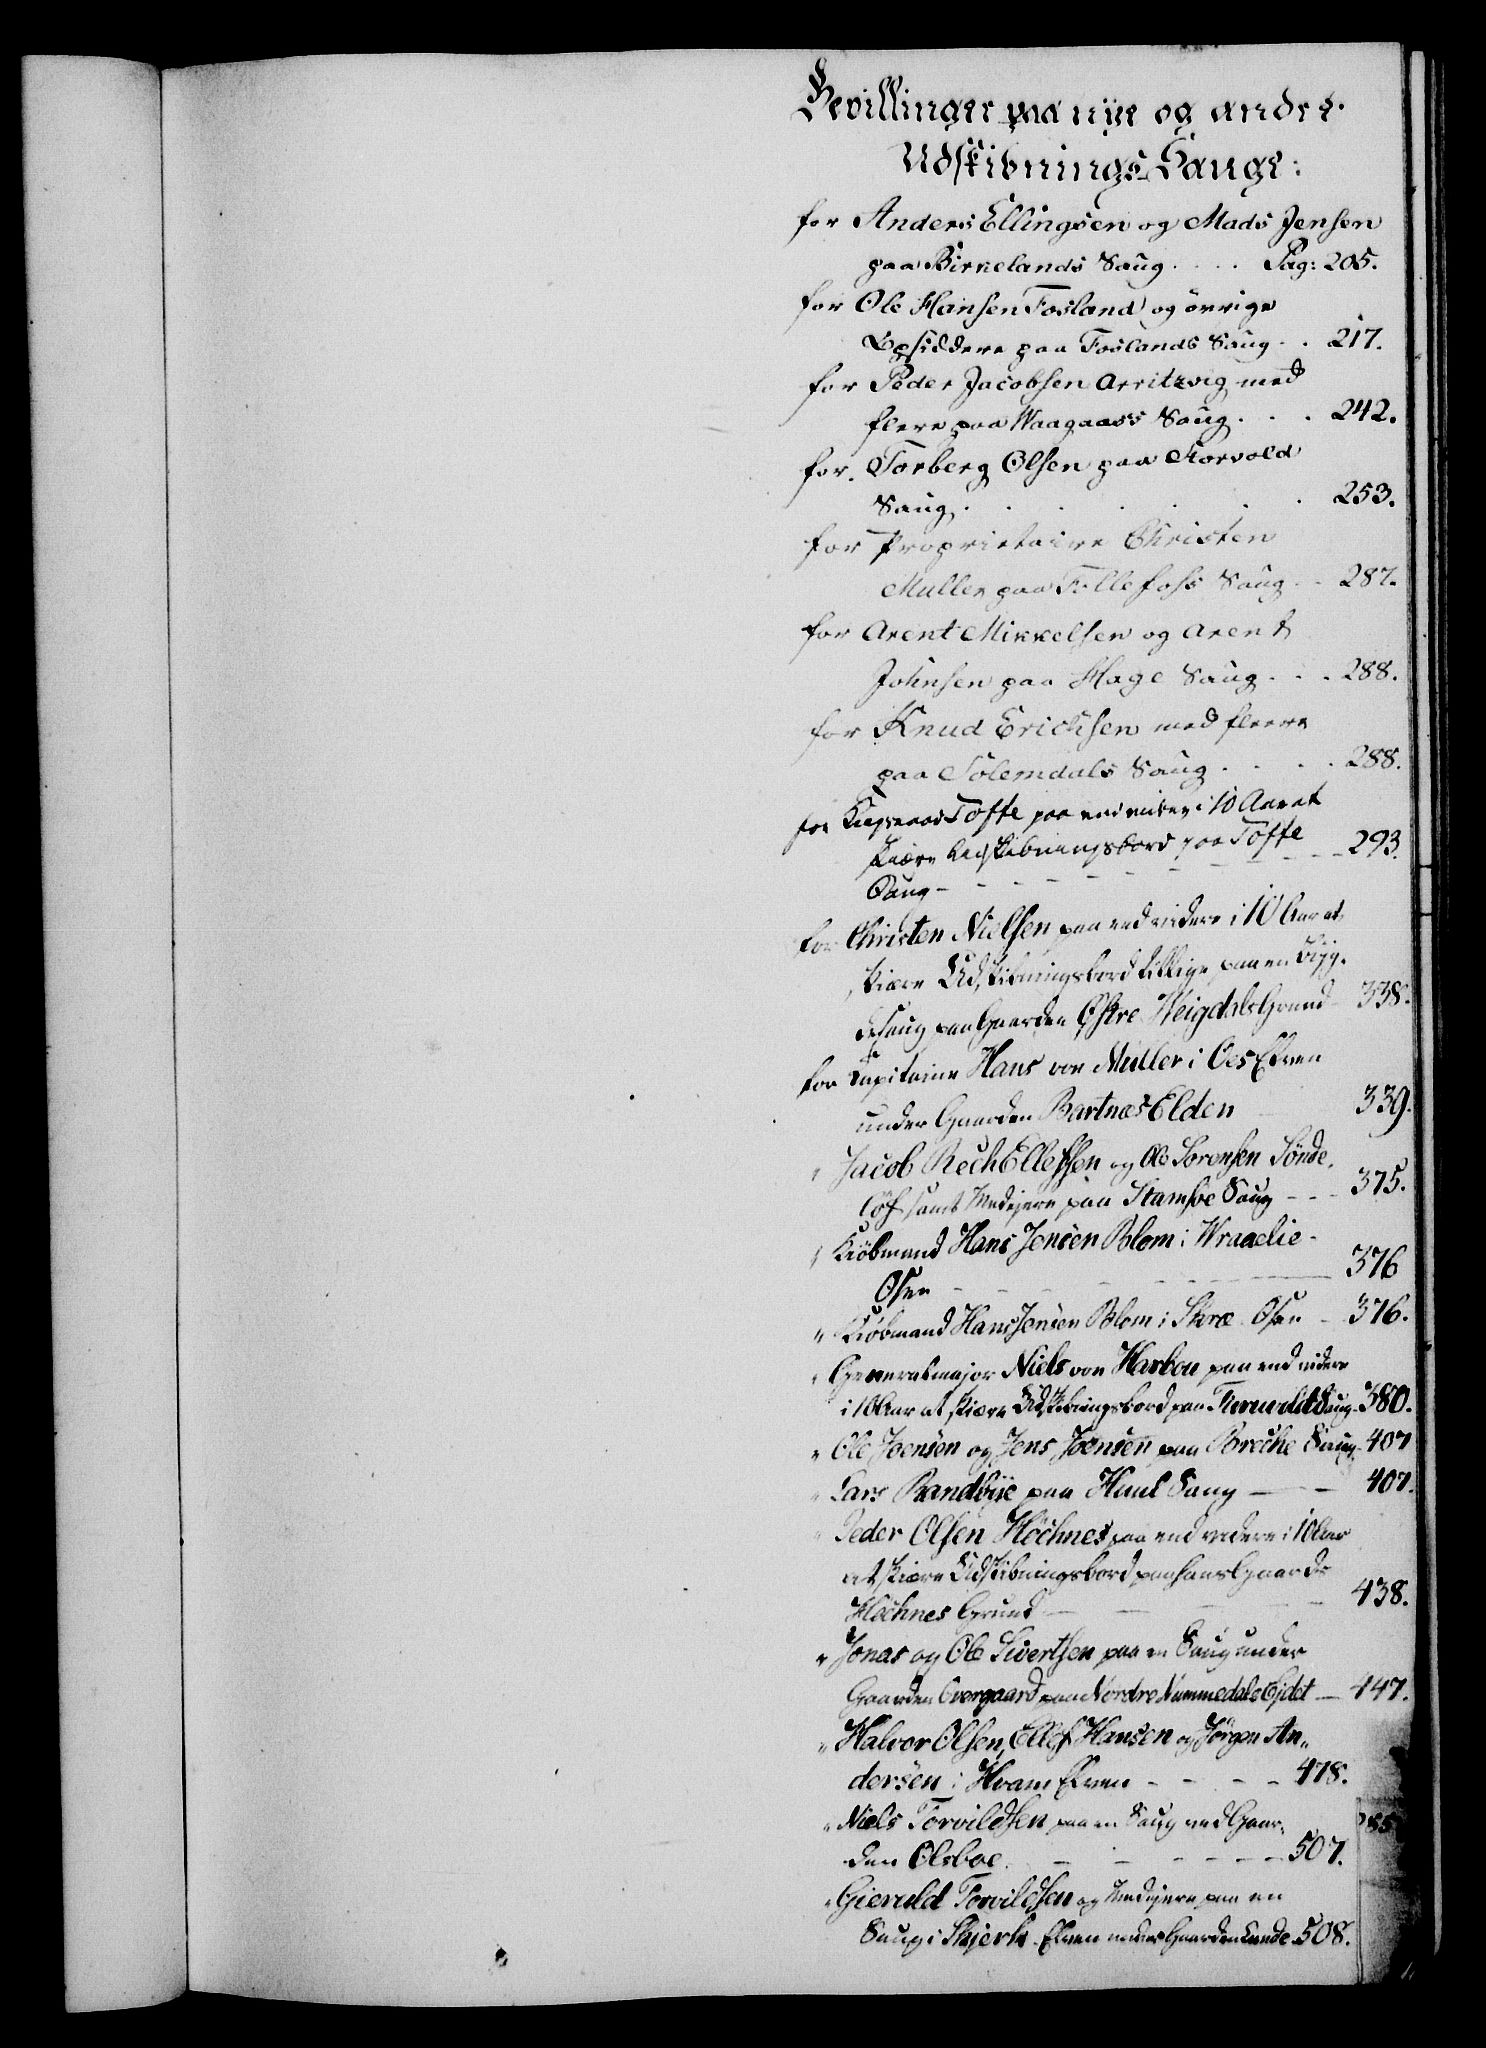 Bevillinger paa nye og andre
Udskibnings Sauge:
for Anders Ellingsen og Mads Jensen
paa Birkelands Saug . . . . Pag: 205.
for Ole Hansen Fosland og övrige
Opsiddere paa Foslands Saug . . 217.
for Peder Jacobsen Arritzvig med
flere paa Waagaass Saug . . . 242.
for Torberg Olsen paa Storvold
Saug . . . . . . 253.
for Proprietaire Christen
Muller paa Fillefoss Saug . . 287.
for Arent Mikkelsen og Arent
Johnsen paa Hage Saug . . . 288.
for Knud Erichsen med fleere
paa Solemdals Saug . . . . 288.
for Tofte paa end videre i 10 Aar at
skiære Udskibningsbord paa Tofte
Saug - - - - - - 293.
for Christen Nielsen paa end videre i 10 Aar at
skiære Udskibningsbord tillige paa en Byg-
desaug paa Gaarden Østre Heigdals Grund 338.
for Capitaine Hans von Muller i Oes Elven
under Gaarden Bartnes Elden 339.
" Jacob Rech Ellefsen og Ole Sörensen Sönde-
löf samt Medejere paa Stamsöe Saug - - - 375.
" Kiöbmand Hans Jensen Blom i Wraaelie-
Osen - - - - - 376
" Kiöbmand Hans Jensen Blom i Skræ Osen - 376.
" Generalmajor Niels von Harbou paa end videre
i 10 Aar at skiære Udskibningsbord paa Saug 380.
" Ole Joensen og Jens Joensen paa Breche Saug 407
" Lars Randbye paa Huul Saug - - 407.
" Peder Olsen Höchnes paa end videre i 10 Aar
at skiære Udskibningsbord paa hans Gaards
Höchnes Grund - - - - 438.
" Jonas og Ole Sivertsen paa en Saug under
Gaarden Overgaard paa Nordre Nummedals Ejdet - 447.
" Halvor Olsen, Ellef Hansen og Jörgen An-
dersen i Hvam Elven - - - - 478.
" Niels Torvildsen paa en Saug ved Gaar-
den Olsboe - - - - - 507.
" Gieruld Torvildsen og Medejere paa en
Saug i Skjerk-Elven under Gaarden Lunde 508.